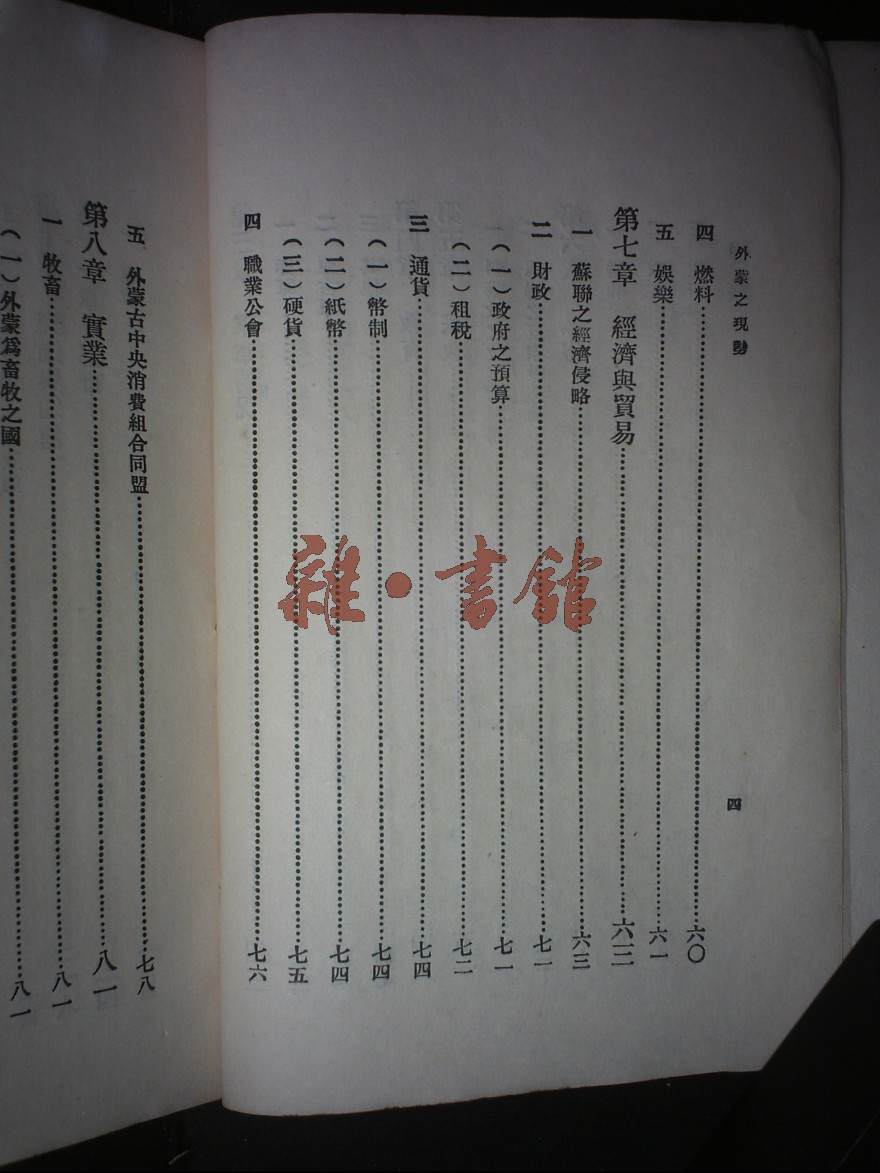 外蒙之現勢
四
四　燃料……六〇
五　娛樂……六一
第七章　經濟與貿易……六三
一　蘇聯之經濟侵略……六三
二　財政……七一
（一）政府之預算……七一
（二）租稅……七二
三　通貨……七四
（一）幣制……七四
（二）紙幣……七四
（三）硬貨……七五
四　職業公會……七六
五　外蒙古中央消費組合同盟……七八
第八章　實業……八一
一　牧畜……八一
（一）外蒙爲畜牧之國……八一
雜·書館